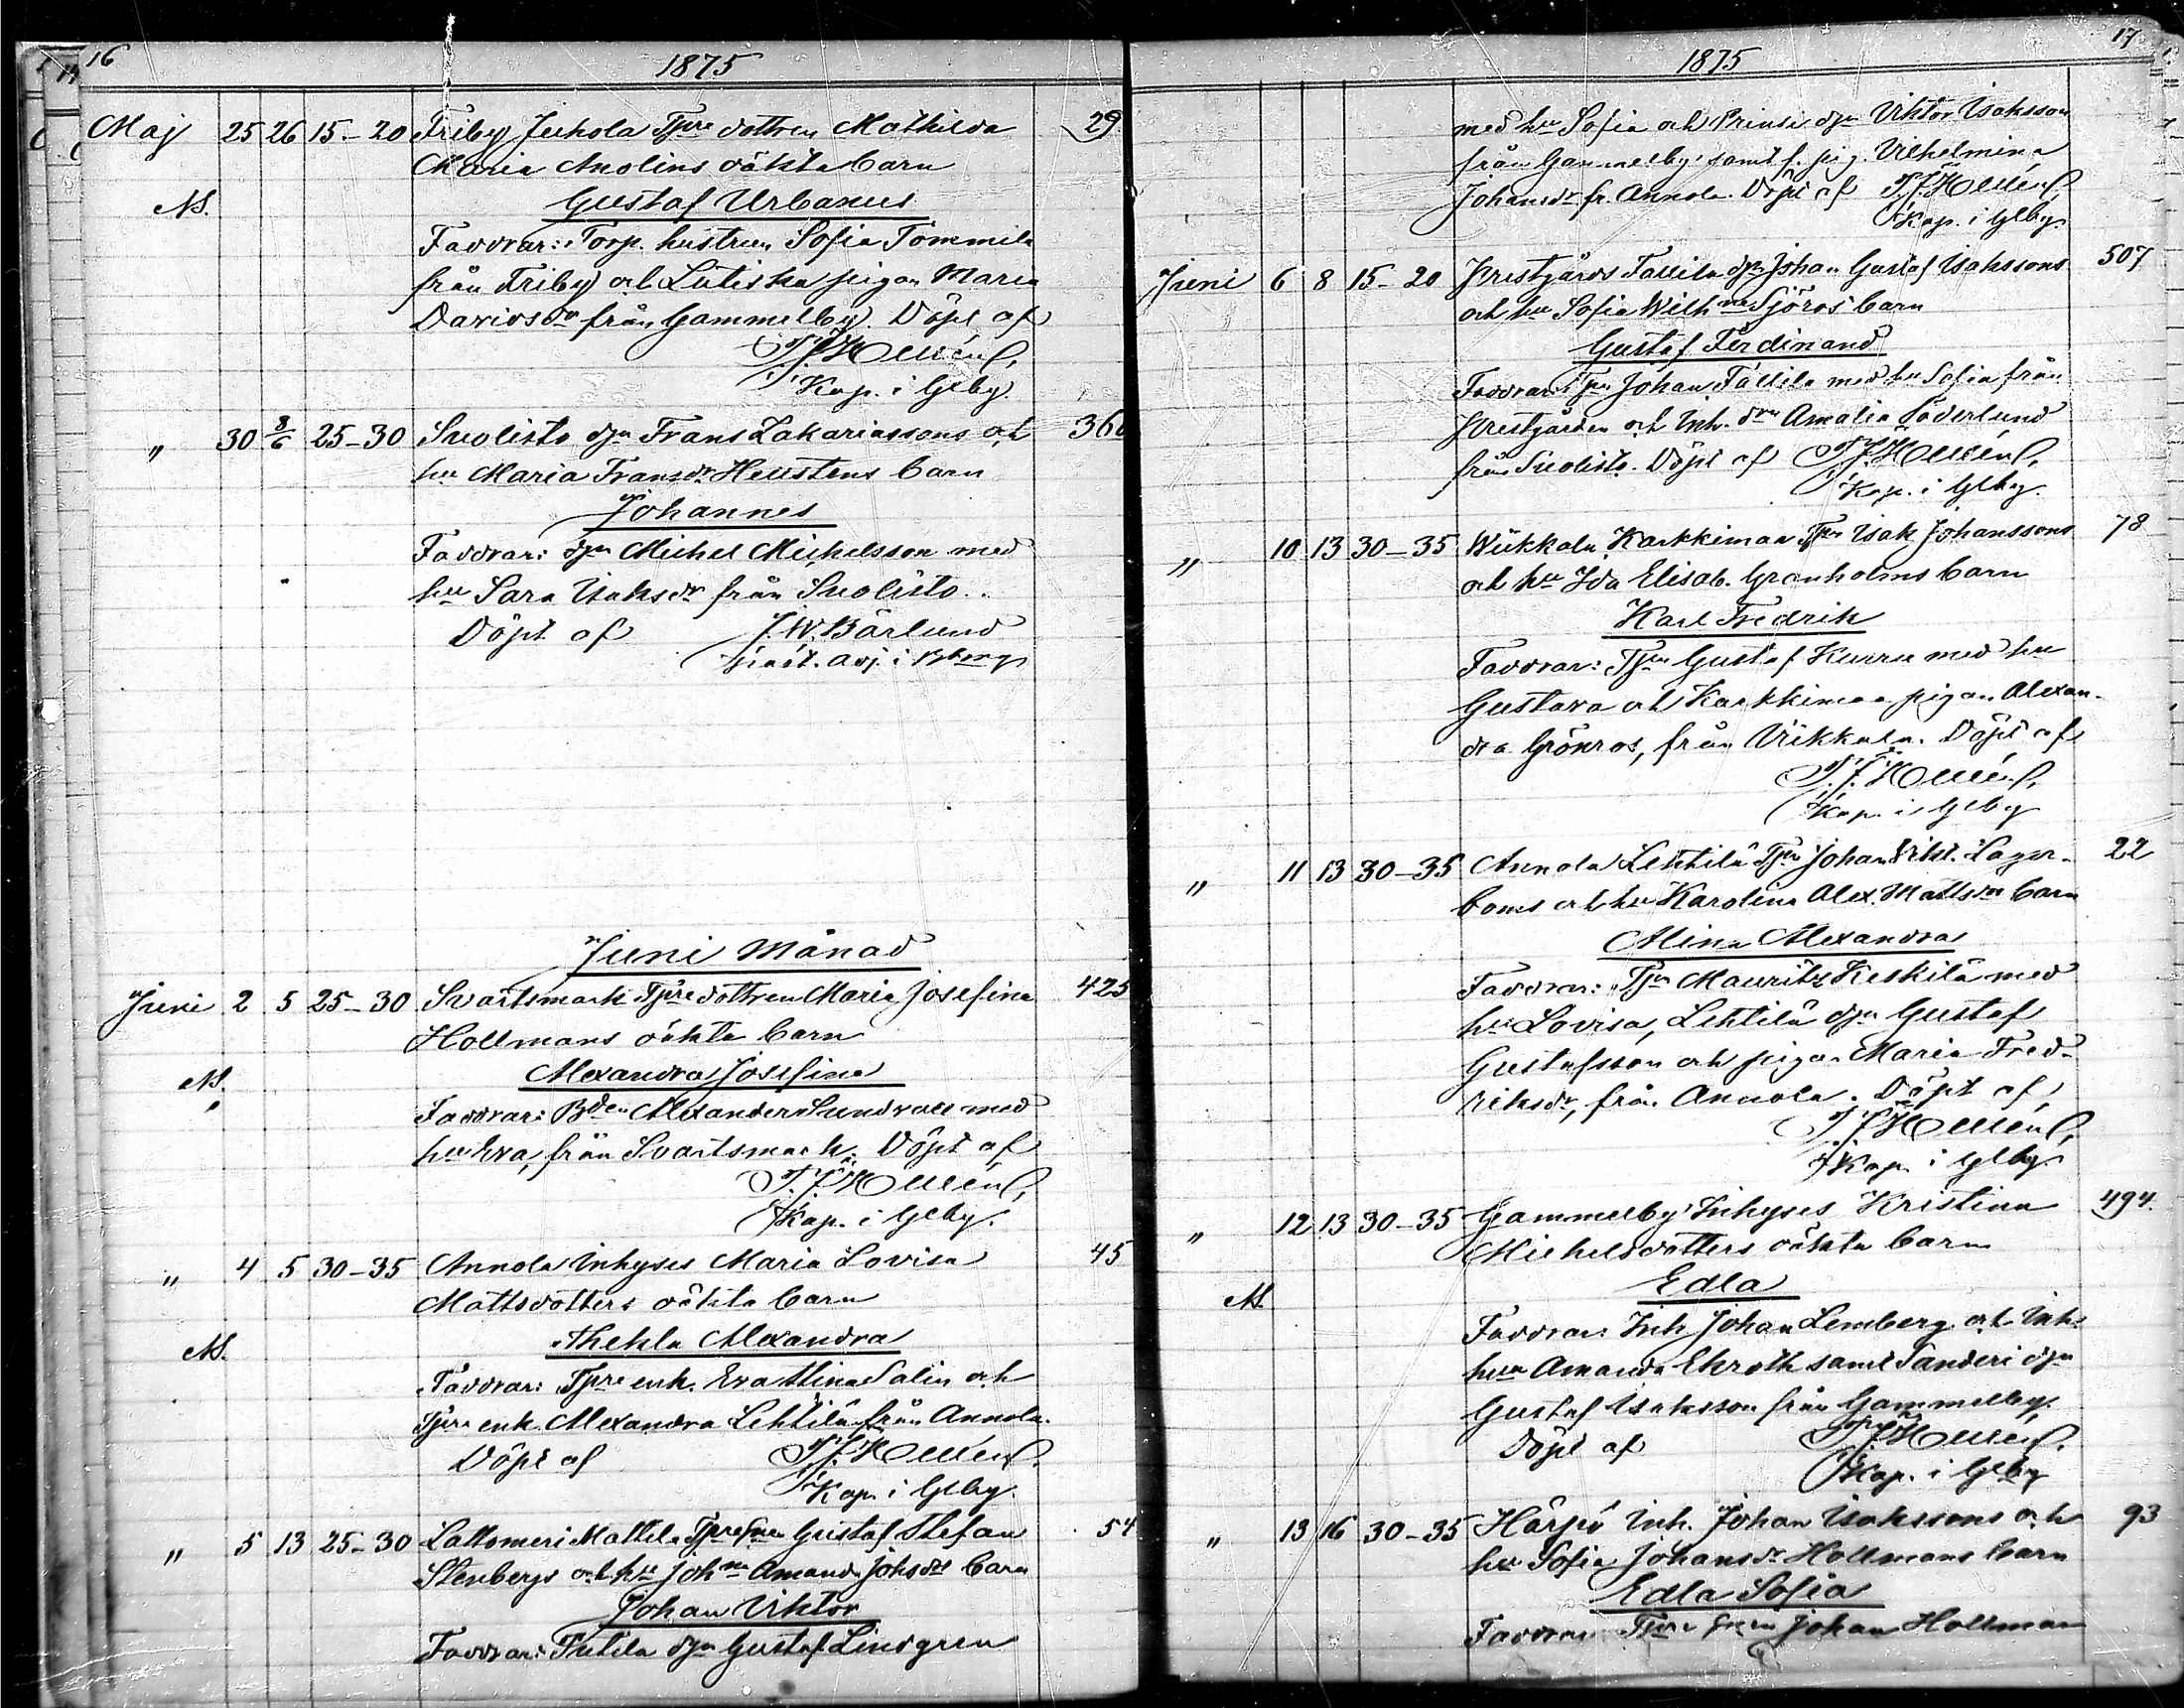 16
1875
Maj 25 26 15-20 Friby Juhola Tjpre dottren Mathilda 29
Maria Anolins oäkta barn
N.
Gustaf Urbanus
Faddrar: Torp. hustrun Sofia Tommila
från Friby och Lutiska pigan Maria
Davidsdr från Gammelby. Döpt af
Kap. i Glby.
" 30 8/6 25-30 Suolisto dgn Frans Zakariassons och 360
hu Maria Fransdr Hellstens barn
Johannes
Faddrar: dgn Michel Michelsson med
hu Sara Isaksdr från Suolisto.
Döpt af J. W. Bärlund
past. adj. i Bborg
Juni Månad
Juni 2 5 25-30 Svartsmark Tjpre dottren Maria Josefina 425
Hollmans oäkta barn
N.
Alexandra Josefina
Faddrar: Bden Alexander Sundvall med
hu Eva, från Svartsmark. Döpt af
Kap. i Glby.
" 4 5 30-35 Annola Inhyses Maria Lovisa 45
Mattsdotters oäkta barn
N.
Thekla Alexandra
Faddrar: Tjpre enk. Eva Stina Salin och
Tjpre enk. Alexandra Lehtilä från Annola.
Döpt af
Kap. i Glby.
" 5 13 25-30 Lattomeri Mattila Gustaf Stefan 54
Stenbergs och hu Johna Amanda Johsdrs barn
Johan Viktor
Faddrar: dgn Gustaf Lindgren
17
1875
med hu Sofia och Prinsi dgn Viktor Isaksson
från Gammelby samt f. pig. Vilhelmina
Johansdr fr. Annola. Döpt af
Kap. i Glby.
Juni 6 8 15-20 Prestgårds Tallila dgn Johan Gustaf Isakssons 507
och hu Sofia Wilhna Sjöros barn
Gustaf Ferdinand
Faddrar: Johan Tallila med hu Sofia från
Prestgården och Inh. Amalia Söderlund
från Suolisto. Döpt af
Kap. i Glby.
" 10 13 30-35 Wiikkala Karkkimaa Isak Johanssons 78
och hu Ida Elisab. Granholms barn
Karl Fredrik
Faddrar: Gustaf Kurru med hu
Gustava och Karkkimaa pigan Alexan-
dra Grönros, från Viikkala. Döpt af
Kap. i Glby
" 11 13 30-35 Annola Lehtilä Johan Vikt. Lager- 22
boms och hu Karolina Alex. Mattsdrs barn
Alina Alexandra
Faddrar: Mauritz Keskilä med
hu Lovisa, Lehtilä dgn Gustaf
Gustafsson och pigan Maria Fred-
riksdr, från Annola. Döpt af
Kap. i Glby.
" 12 13 30-35 Gammelby Inhyses Kristina 494.
Michelsdotters oäkta barn
N.
Edla
Faddrar: Inh. Johan Lemberg och Inh.
Amanda Ekroth samt Sanderi dgn
Gustaf Isaksson från Gammelby.
Döpt af
Kap. i Glby
" 13 16 30-35 Härpö Inh. Johan Isakssons och 93
hu Sofia Johansdr Hollmans barn
Edla Sofia
Faddrar: Johan Hollman